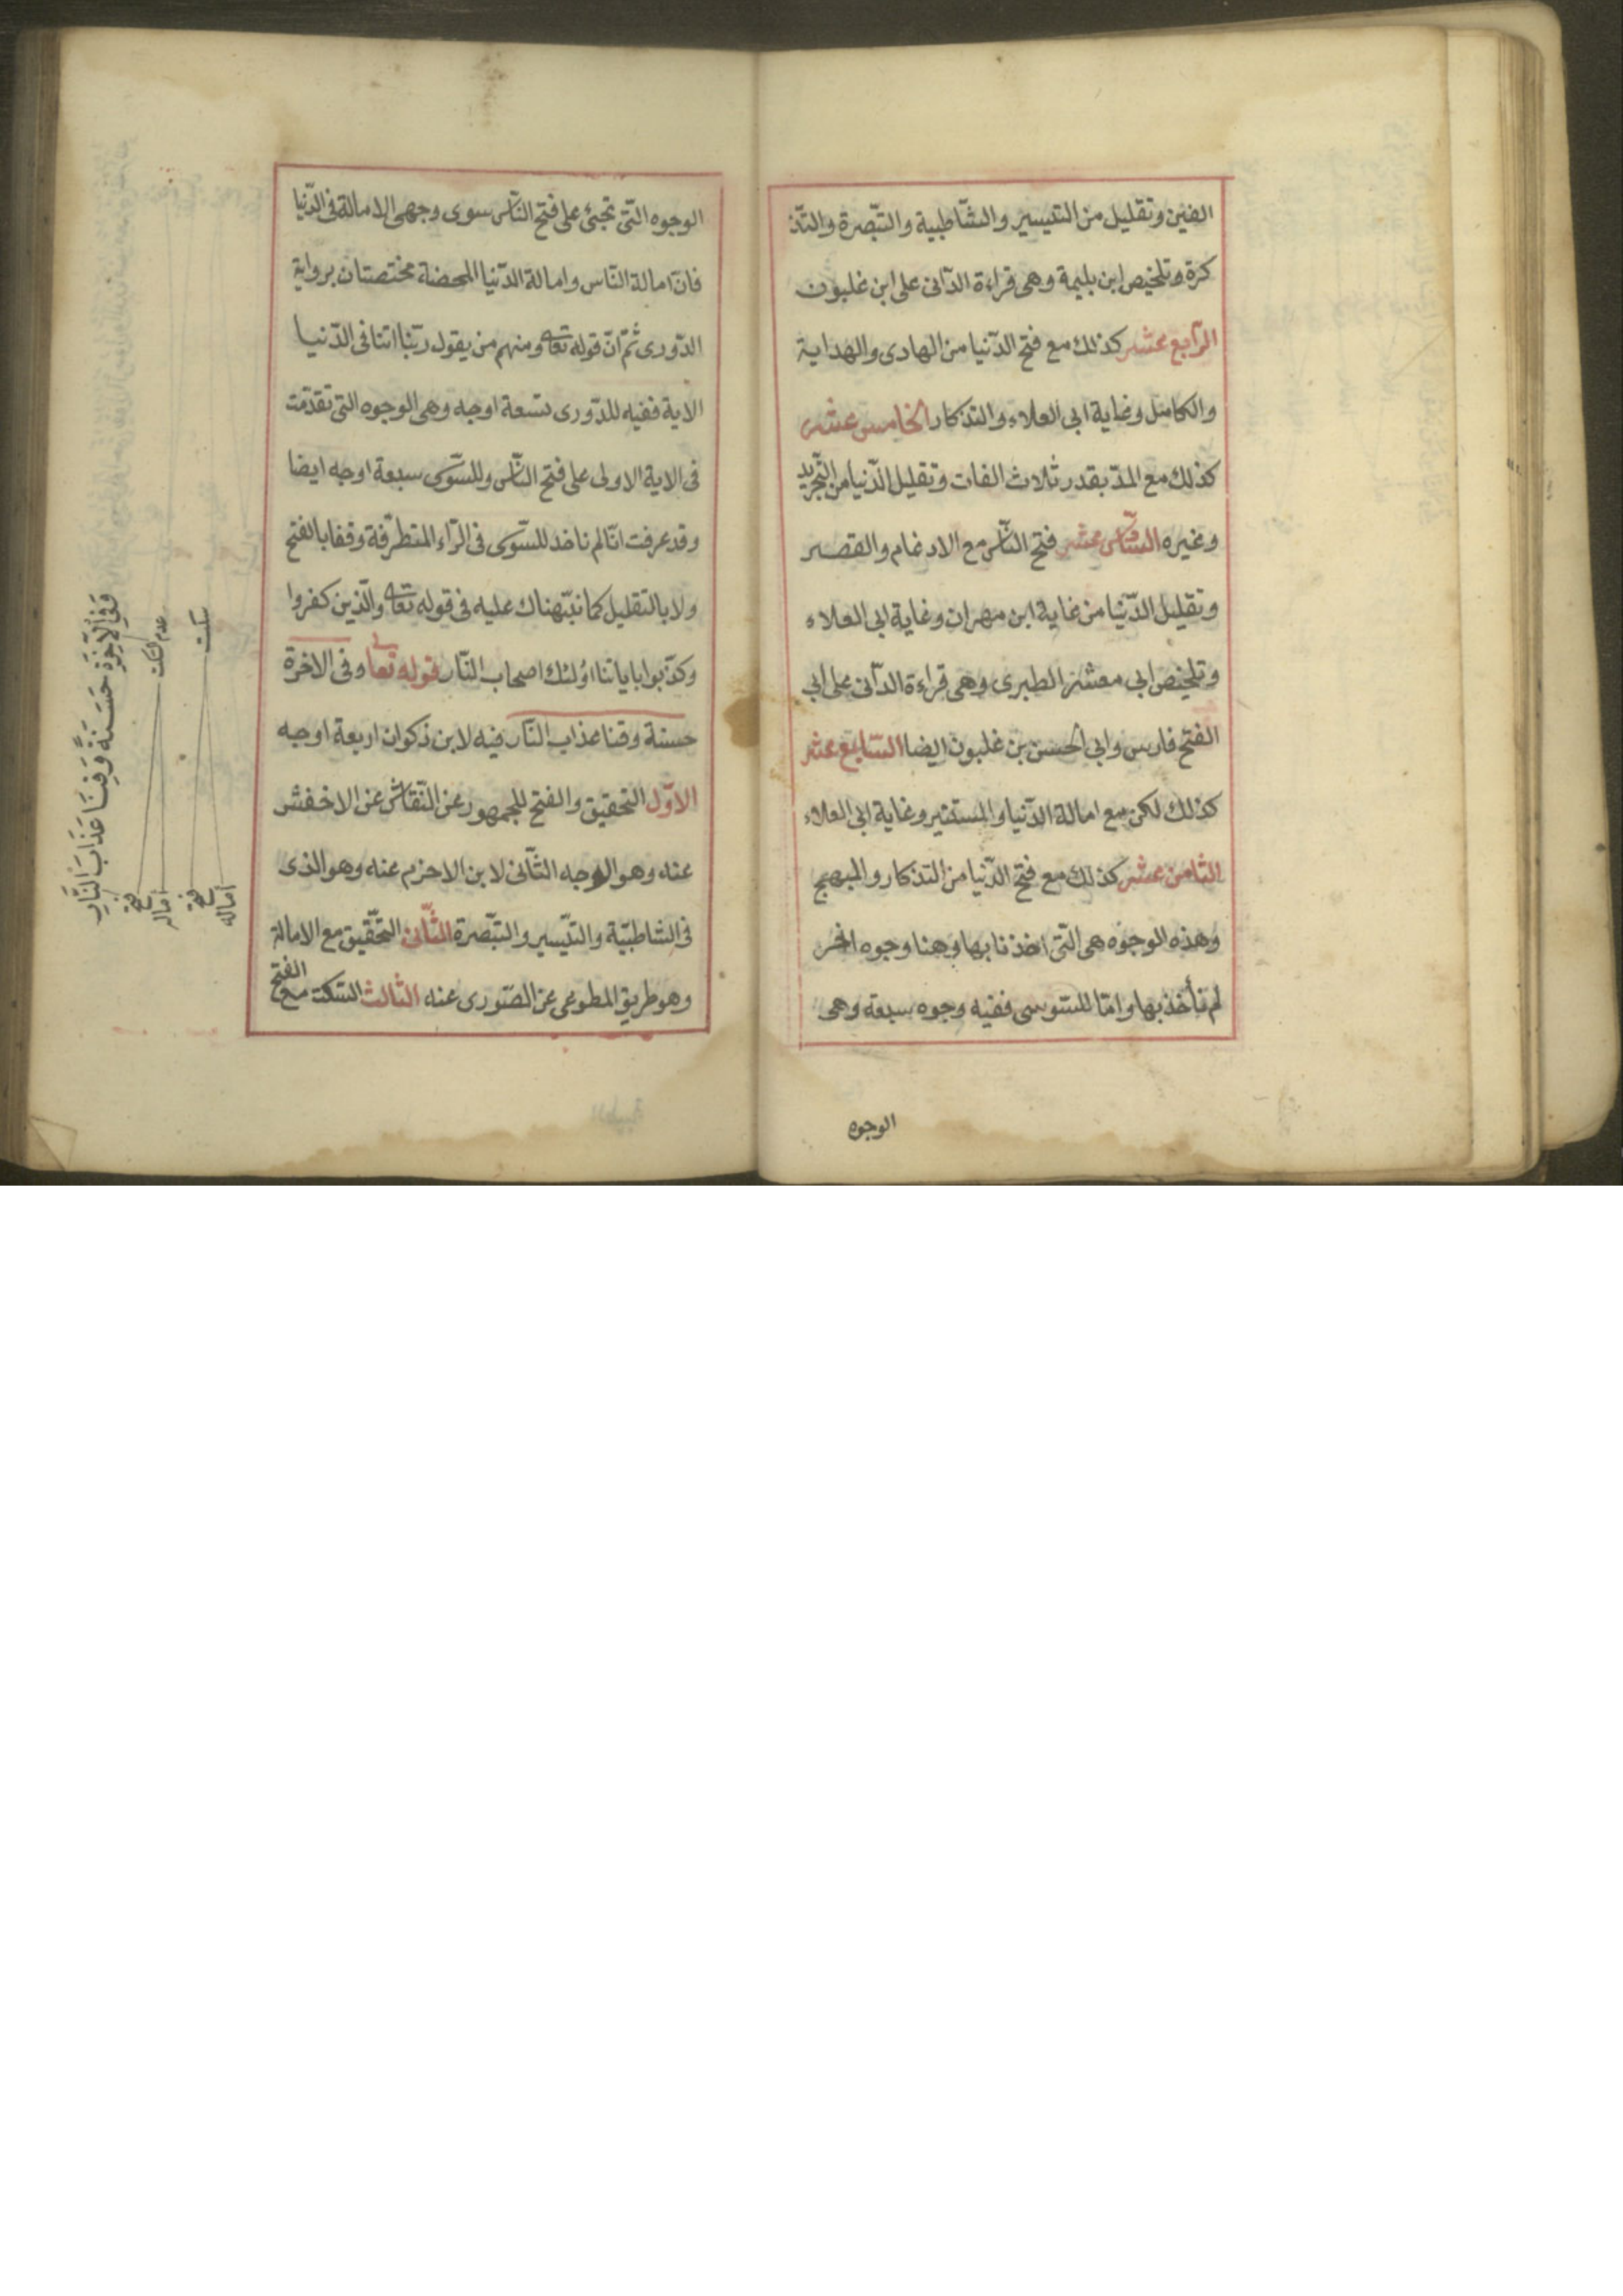 الفين وتقليل من التيسير والشاطبية والتبصرة والتذ
كرة وتلخيص ابن بليمة وهى قراءة الدانى على ابن غلبون
الرابع عشر كذلك مع فتح الدنيا من الهادى والهداية
والكامل وغاية ابى العلاء والتذكار الخامس عشر
كذلك مع المد بقدر ثلاث الفات وتقليل الدنيا من التجريد
وغيره السادس عشر فتح الناس مع الادغام والقصر
وتقليل الدنيا من غاية ابن مهران وغاية ابى العلاء
وتلخيص ابى معشر الطبرى وهى قراءة الدانى على ابى
الفتح فارس وابى الحسن بن غلبون ايضا السابع عشر
كذلك لكن مع امالة الدنيا والمستنير وغاية ابى العلاء
الثامن عشر كذلك مع فتح الدنيا من التذكار والمبهج
وهذه الوجوه هى التى اخذنا بها وهنا وجوه اخر
لم نأخذ بها واما للسوسى ففيه وجوه سبعة وهى
الوجوه
الوجوه التى تجئ على فتح الناس سوى وجهى الامالة فى الدنيا
فان امالة الناس وامالة الدنيا المحضة مختصتان برواية
الدورى ثم ان قوله تعالى ومنهم من يقول ربنا اتنا فى الدنيا
الاية ففيه للدورى تسعة اوجه وهى الوجوه التى تقدمت
فى الاية الاولى على فتح الناس وللسوسى سبعة اوجه ايضا
وقد عرفت انا لم ناخذ للسوسى فى الراء المتطرفة وقفا بالفتح
ولا بالتقليل كما نبهناك عليه فى قوله تعالى والذين كفروا
وكذبوا باياتنا اولئك اصحاب النار قوله تعالى وفى الاخرة
حسنة وقنا عذاب النار فيه لابن ذكوان اربعة اوجه
الاول التحقيق والفتح للجمهور عن النقاش عن الاخفش
عنه وهو الوجه الثانى لابن الاخرم عنه وهو الذى
فى الشاطبية والتيسير والتبصرة الثانى التحقيق مع الامالة
وهو طريق المطوعى عن الصورى عنه الثالث السكت مع الفتح
وَفِي الْآخِرَةِ حَسَنَةً وَقِنَا عَذَابَ النَّارِ
عدم السكت
سكت
فتح
امالة
فتح
امالة